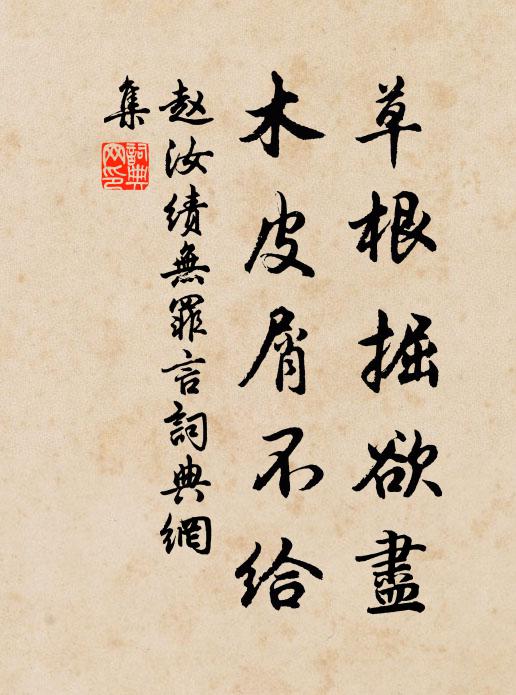 草根掘欲盡
木皮屑不給
赵汝績無罪言詞典網
集
詞典
网印